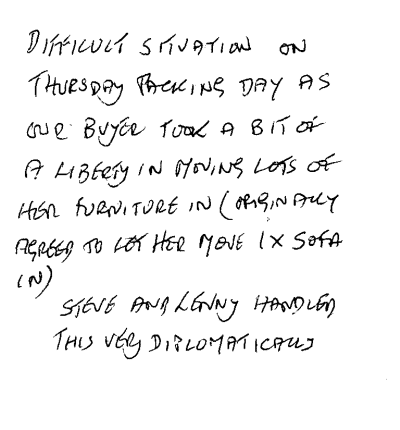 DIFFICULT SITUATION ON
THURSDAY PACKING DAY AS
OUR BUYER TOOK A BIT OF
A LIBERTY IN MOVING LOTS OF
HER FURNITURE IN (ORIGINALLY
AGREED TO LET HER MOVE 1X SOFA
IN)
STEVE AND LENNY HANDLED
THIS VERY DIPLOMATICALLY